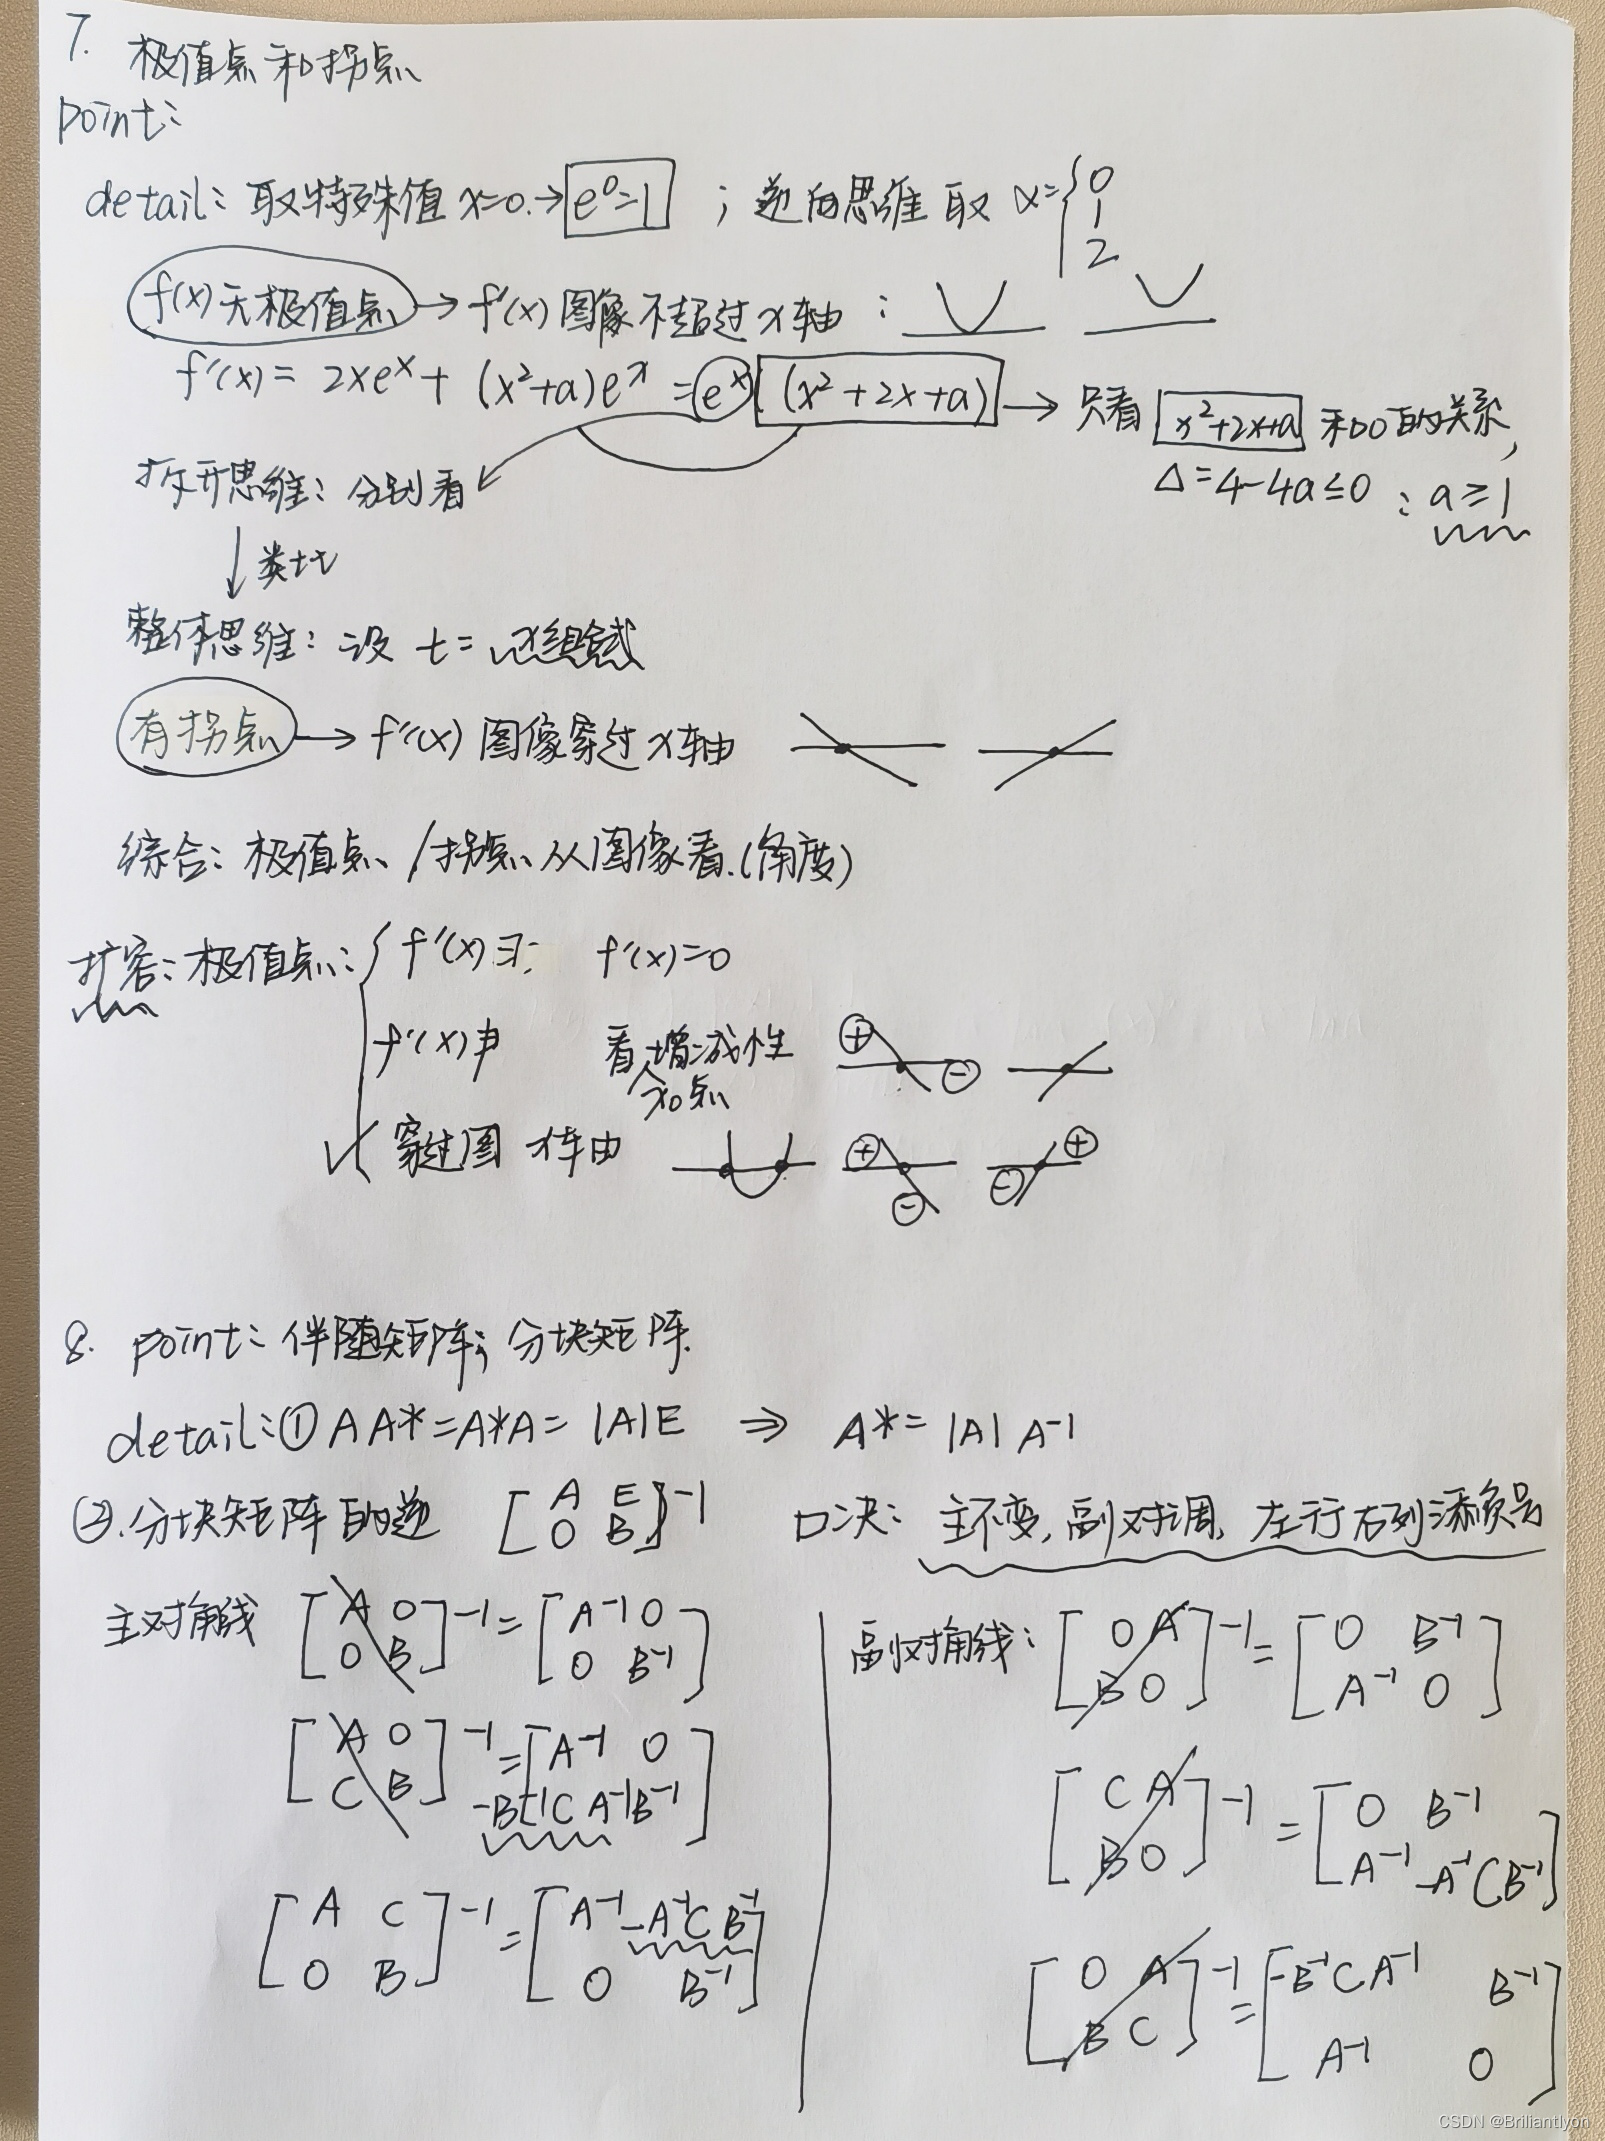 7. 极值点和拐点
point:
detail: 取特殊值 x=0.→ e⁰=1 ; 逆向思维 取 x={0 1 2
f(x)无极值点 → f'(x)图像不超过x轴:
f'(x)= 2xeˣ+(x²+a)eˣ =eˣ(x²+2x+a) → 只看 x²+2x+a 和0的关系,
Δ=4-4a≤0 : a≥1
拆开思维: 分别看
↓类比
整体思维: 设 t= x组合式
有拐点 → f''(x) 图像穿过x轴
综合: 极值点/拐点从图像看.(角度)
扩容: 极值点: { f'(x)∃: f'(x)=0
f'(x)∄ 看增减性
x₀点
✓ 穿过图 x轴
⊕ ⊖
⊕ ⊖ ⊖ ⊕
8. point: 伴随矩阵; 分块矩阵.
detail: ① AA*=A*A= |A|E ⇒ A*= |A| A⁻¹
②.分块矩阵的逆 [A E; O B]⁻¹ 口决: 主不变, 副对调, 左行右列添负号
主对角线 [A O; O B]⁻¹ = [A⁻¹ O; O B⁻¹]
[A O; C B]⁻¹ = [A⁻¹ O; -B⁻¹CA⁻¹ B⁻¹]
[A C; O B]⁻¹ = [A⁻¹ -A⁻¹CB⁻¹; O B⁻¹]
副对角线: [O A; B O]⁻¹ = [O B⁻¹; A⁻¹ O]
[C A; B O]⁻¹ = [O B⁻¹; A⁻¹ -A⁻¹CB⁻¹]
[O A; B C]⁻¹ = [-B⁻¹CA⁻¹ B⁻¹; A⁻¹ O]
CSDN @Briliantlyon